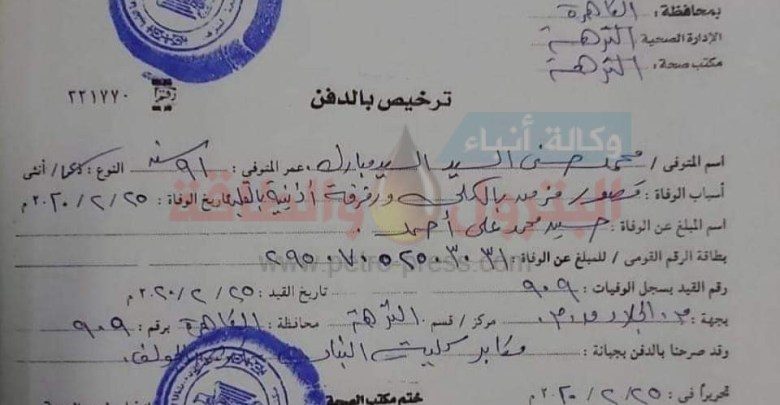 بمحافظة: القاهرة
الإدارة الصحية النزهة
مكتب صحة: النزهة
٢٢١٧٧٠
ترخيص بالدفن
وكالة أنباء
البترول والطاقة
www.petro-press.com
اسم المتوفى / محمد حسنى السيد السيد مبارك عمر المتوفى: ٩١ سنة النوع: ذكر / أنثى
أسباب الوفاة: قصور مزمن بالكلى ورفرفة أذينية بالقلب تاريخ الوفاة: ٢٠٢٠/٢/٢٥ م
اسم المبلغ عن الوفاة: سيد محمد على أحمد
بطاقة الرقم القومى / للمبلغ عن الوفاة:
رقم القيد بسجل الوفيات: ٩٠٩ تاريخ القيد: ٢٠٢٠/٢/٢٥ م
بجهة: م. الجلاء مركز / قسم النزهة محافظة: القاهرة برقم: ٩٠٩
وقد صرحنا بالدفن بجبانة: مقابر كلية البنات
تحريرا فى: ٢٠٢٠/٢/٢٥ م ختم مكتب الصحة